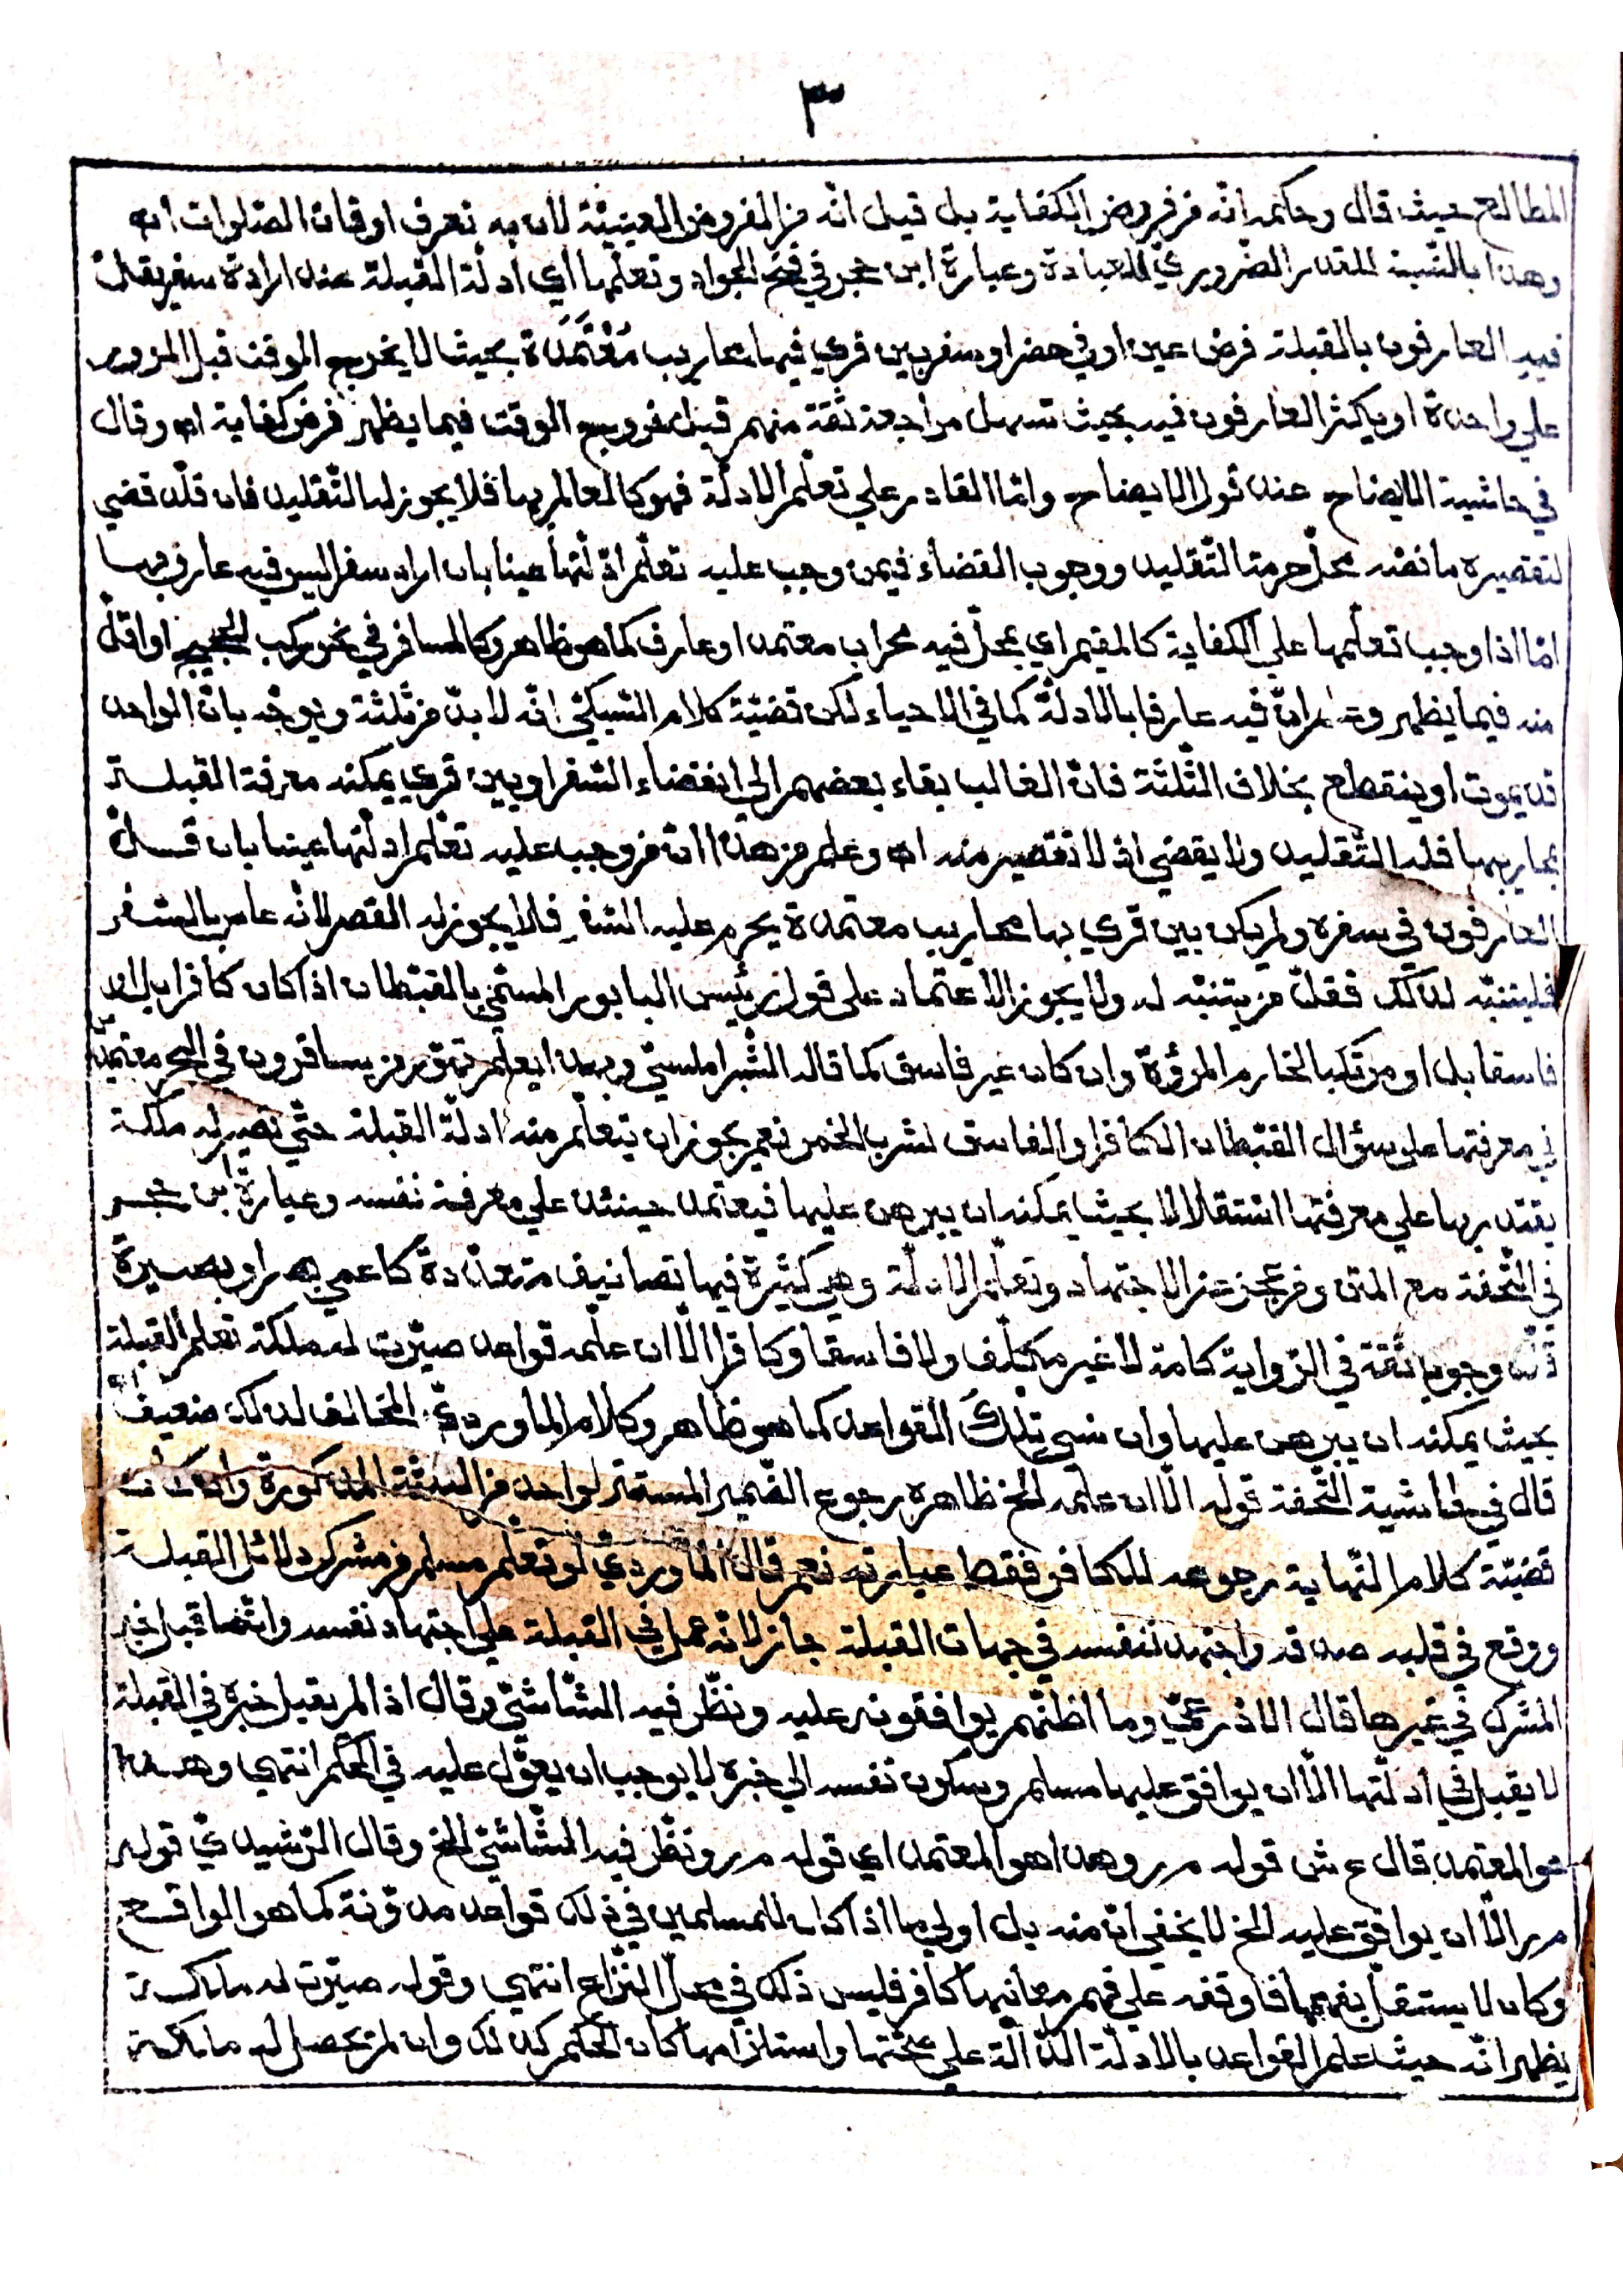 ٣
المطالع حيث قال وحكمه انّه من فروض الكفاية بل قيل انّه من الفروض العينيّة لان به تعرف اوقات الصّلوات اه
وهذا بالنّسبة للقدر الضّروريّ للعبادة وعبارة ابن حجر في فتح الجواد وتعلّمها اي ادلّة القبلة عند ارادة سفر يقلّ
فيه العارفون بالقبلة فرض عين او في حضر او سفر بين قري فيها محاريب مُعْتَمَدَة بحيث لا يخرج الوقت قبل المرور
علي واحدة او يكثر العارفون فيه بحيث تسهل مراجعة ثقة منهم قبل خروج الوقت فيما يظهر فرض كفاية اه وقال
في حاشية الايضاح عند قول الايضاح وامّا القادر علي تعلّم الادلّة فهو كالعالم بها فلا يجوز له التّقليد فان قلّد قضي
لتقصيره ما نصّه محلّ حرمة التّقليد ووجوب القضاء فيمن وجب عليه تعلّم ادلّتها عينا بان اراد سفرا ليس فيه عارف بها
امّا اذا وجب تعلّمها علي الكفاية كالمقيم اي بمحلّ فيه محراب معتمد او عارف كما هو ظاهر وكالمسافر في نحو ركب الحجيج او اقلّ
منه فيما يظهر وعلم انّ فيه عارفا بالادلّة كما في الاحياء لكن قضيّة كلام السّبكيّ انّه لا بدّ من ثلثة ويوجّه بانّ الواحد
قد يموت او ينقطع بخلاف الثّلثة فانّ الغالب بقاء بعضهم الي انقضاء السّفر او بين قري يمكنه معرفة القبلة
بمحاريبها فله التّقليد ولا يقضي اذ لا تقصير منه اه وعلم من هذا انّ من وجب عليه تعلّم ادلّتها عينا بان قلّ
العارفون في سفره ولم يكن بين قري بها محاريب معتمدة يحرم عليه السّفر فلا يجوز له القصر لانّه عاص بالسّفر
فليتنبّه لذلك فقلّ من يتنبّه له ولا يجوز الاعتماد علي قول رئيس البابور المسمّي بالقبطان اذا كان كافرا بل او
فاسقا بل او مرتكبا لخارم المروّة وان كان غير فاسق كما قاله الشّبراملسيّ وبهذا يعلم تهوّر من يسافرون في البحر معتمدين
في معرفتها علي سؤال القبطان الكافر او الفاسق لشرب الخمر نعم يجوز ان يتعلّم منه ادلّة القبلة حتّي تصير له ملكة
يقتدر بها علي معرفتها استقلالا بحيث يمكنه ان يبرهن عليها فيعتمد حينئذ علي معرفة نفسه وعبارة ابن حجر
في التّحفة مع المتن ومن عجز عن الاجتهاد وتعلّم الادلّة وهي كثيرة فيها تصانيف متعدّدة كاعمي بصر او بصيرة
قلّد وجوبا ثقة في الرّواية كامة لا غير مكلّف ولا فاسقا وكافرا الّا ان علّمه قواعد صيّرت له ملكة تعلم القبلة
بحيث يمكنه ان يبرهن عليها وان نسي تِلْكَ القواعد كما هو ظاهر وكلام الماورديّ المخالف لذلك ضعيف اه
قال في حاشية التّحفة قوله الّا ان علّمه الخ ظاهره رجوع الضّمير المستتر لواحد من الثلثة المذكورة وان كانت
قضيّة كلام النّهاية رجوعه للكافر فقط عبارته نعم قال الماورديّ لو تعلّم مسلم من مشرك دلائل القبلة
ووقع في قلبه صدقه واجتهد لنفسه في جهات القبلة جاز لانّه عمل في القبلة علي اجتهاد نفسه وانّما قبل خبر
المشرك في غيرها قال الاذرعيّ وما اظنّهم يوافقونه عليه ونظّر فيه الشّاشيّ وقال اذا لم يقبل خبره في القبلة
لا يقبل في ادلّتها الّا ان يوافق عليها مسلم وسكون نفسه الي خبره لا يوجب ان يعوّل عليه في الحكم انتهي وهذا
هو المعتمد قال ع ش قوله م ر وهذا هو المعتمد اي قوله م ر ونظّر فيه الشّاشيّ الخ وقال الرّشيديّ قوله
م ر الّا ان يوافق عليه الخ لا يخفي انّ منه بل اولي ما اذا كان للمسلمين في ذلك قواعد مدوّنة كما هو الواقع
وكان لا يستقلّ بفهمها فاوقفه علي فهم معانيها كافر فليس ذلك في محلّ النّزاع انتهي وقوله صيّرت له ملكة
يظهر انّه حيث علم القواعد بالادلّة الدّالّة علي صحّتها واستلزامها كان الحكم كذلك وان لم تحصل له ملكة